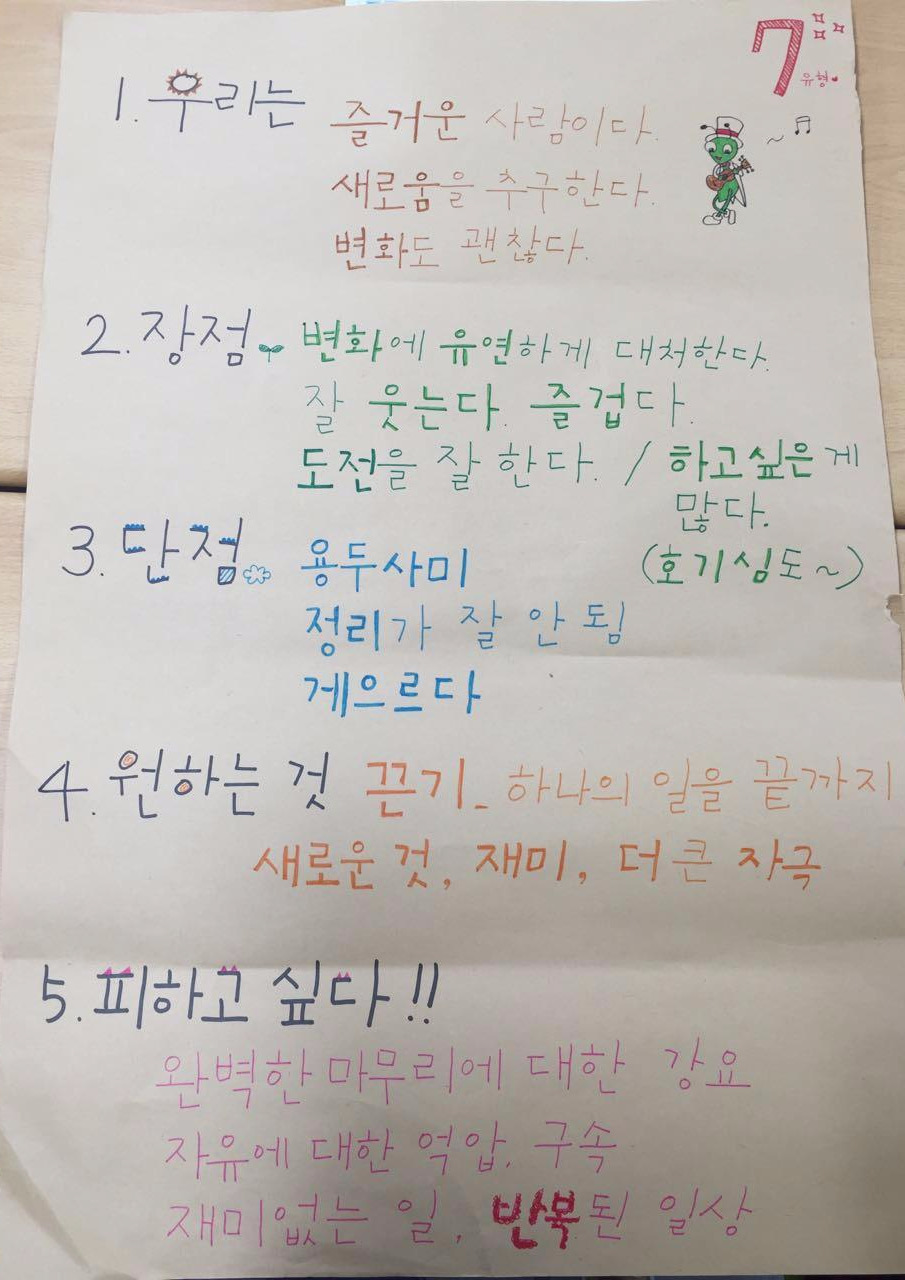 7유형
1. 우리는 즐거운 사람이다.
새로움을 추구한다.
변화도 괜찮다.
2. 장점 변화에 유연하게 대처한다.
잘 웃는다. 즐겁다.
도전을 잘 한다. / 하고싶은게
많다.
(호기심도~)
3. 단점 용두사미
정리가 잘 안 됨
게으르다
4. 원하는 것 끈기_ 하나의 일을 끝까지
새로운 것, 재미, 더 큰 자극
5. 피하고 싶다!!
완벽한 마무리에 대한 강요
자유에 대한 억압, 구속
재미없는 일, 반복된 일상